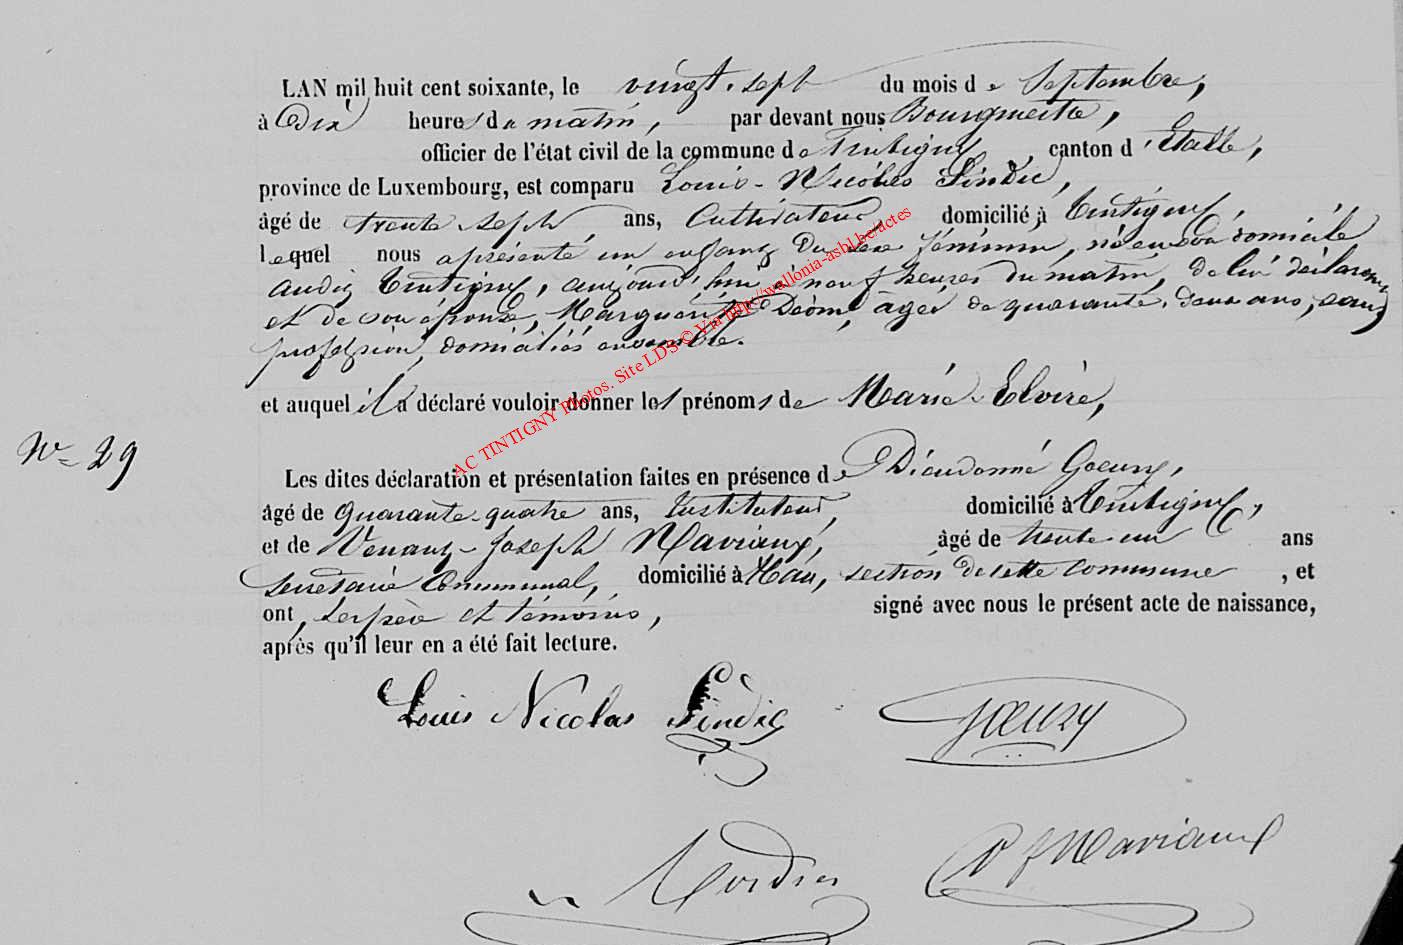 LAN mil huit cent soixante, le vingt-sept du mois de Septembre,
à Dix heures du matin, par devant nous Bourgmestre,
officier de l'état civil de la commune de Tintigny, canton d'Etalle,
province de Luxembourg, est comparu Louis-Nicolas Lindic,
âgé de trente-sept ans, Cultivateur, domicilié à Tintigny,
lequel nous a présenté un enfant du sexe féminin, né en son domicile
audit Tintigny, aujourd'hui à neuf heures du matin, de lui déclarant
et de son épouse, Marguérite Déom, agée de quarante-deux ans, sans
profession, domiciliés ensemble.
et auquel il a déclaré vouloir donner les prénoms de Marie-Elvire,
N° 29
Les dites déclaration et présentation faites en présence de Dieudonné Goeury,
âgé de Quarante-quatre ans, Instituteur, domicilié à Tintigny,
et de Venant-Joseph Maviaux, âgé de trente-un ans
Secrétaire Communal, domicilié à Han, section de cette commune, et
ont, les père et témoins, signé avec nous le présent acte de naissance,
après qu'il leur en a été fait lecture.
Louis Nicolas Lindic Goeury
Maviaux
AC TINTIGNY Photos. Site LDS © Via http://wallonia-asbl.be/actes